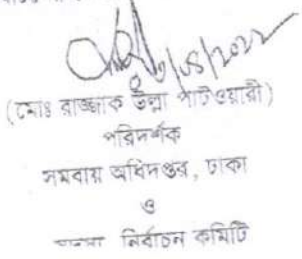 (মোঃ রাজ্জাক উল্লা পাটওয়ারী)
পরিদর্শক
সমবায় অধিদপ্তর, ঢাকা
ও
নির্বাচন কমিটি